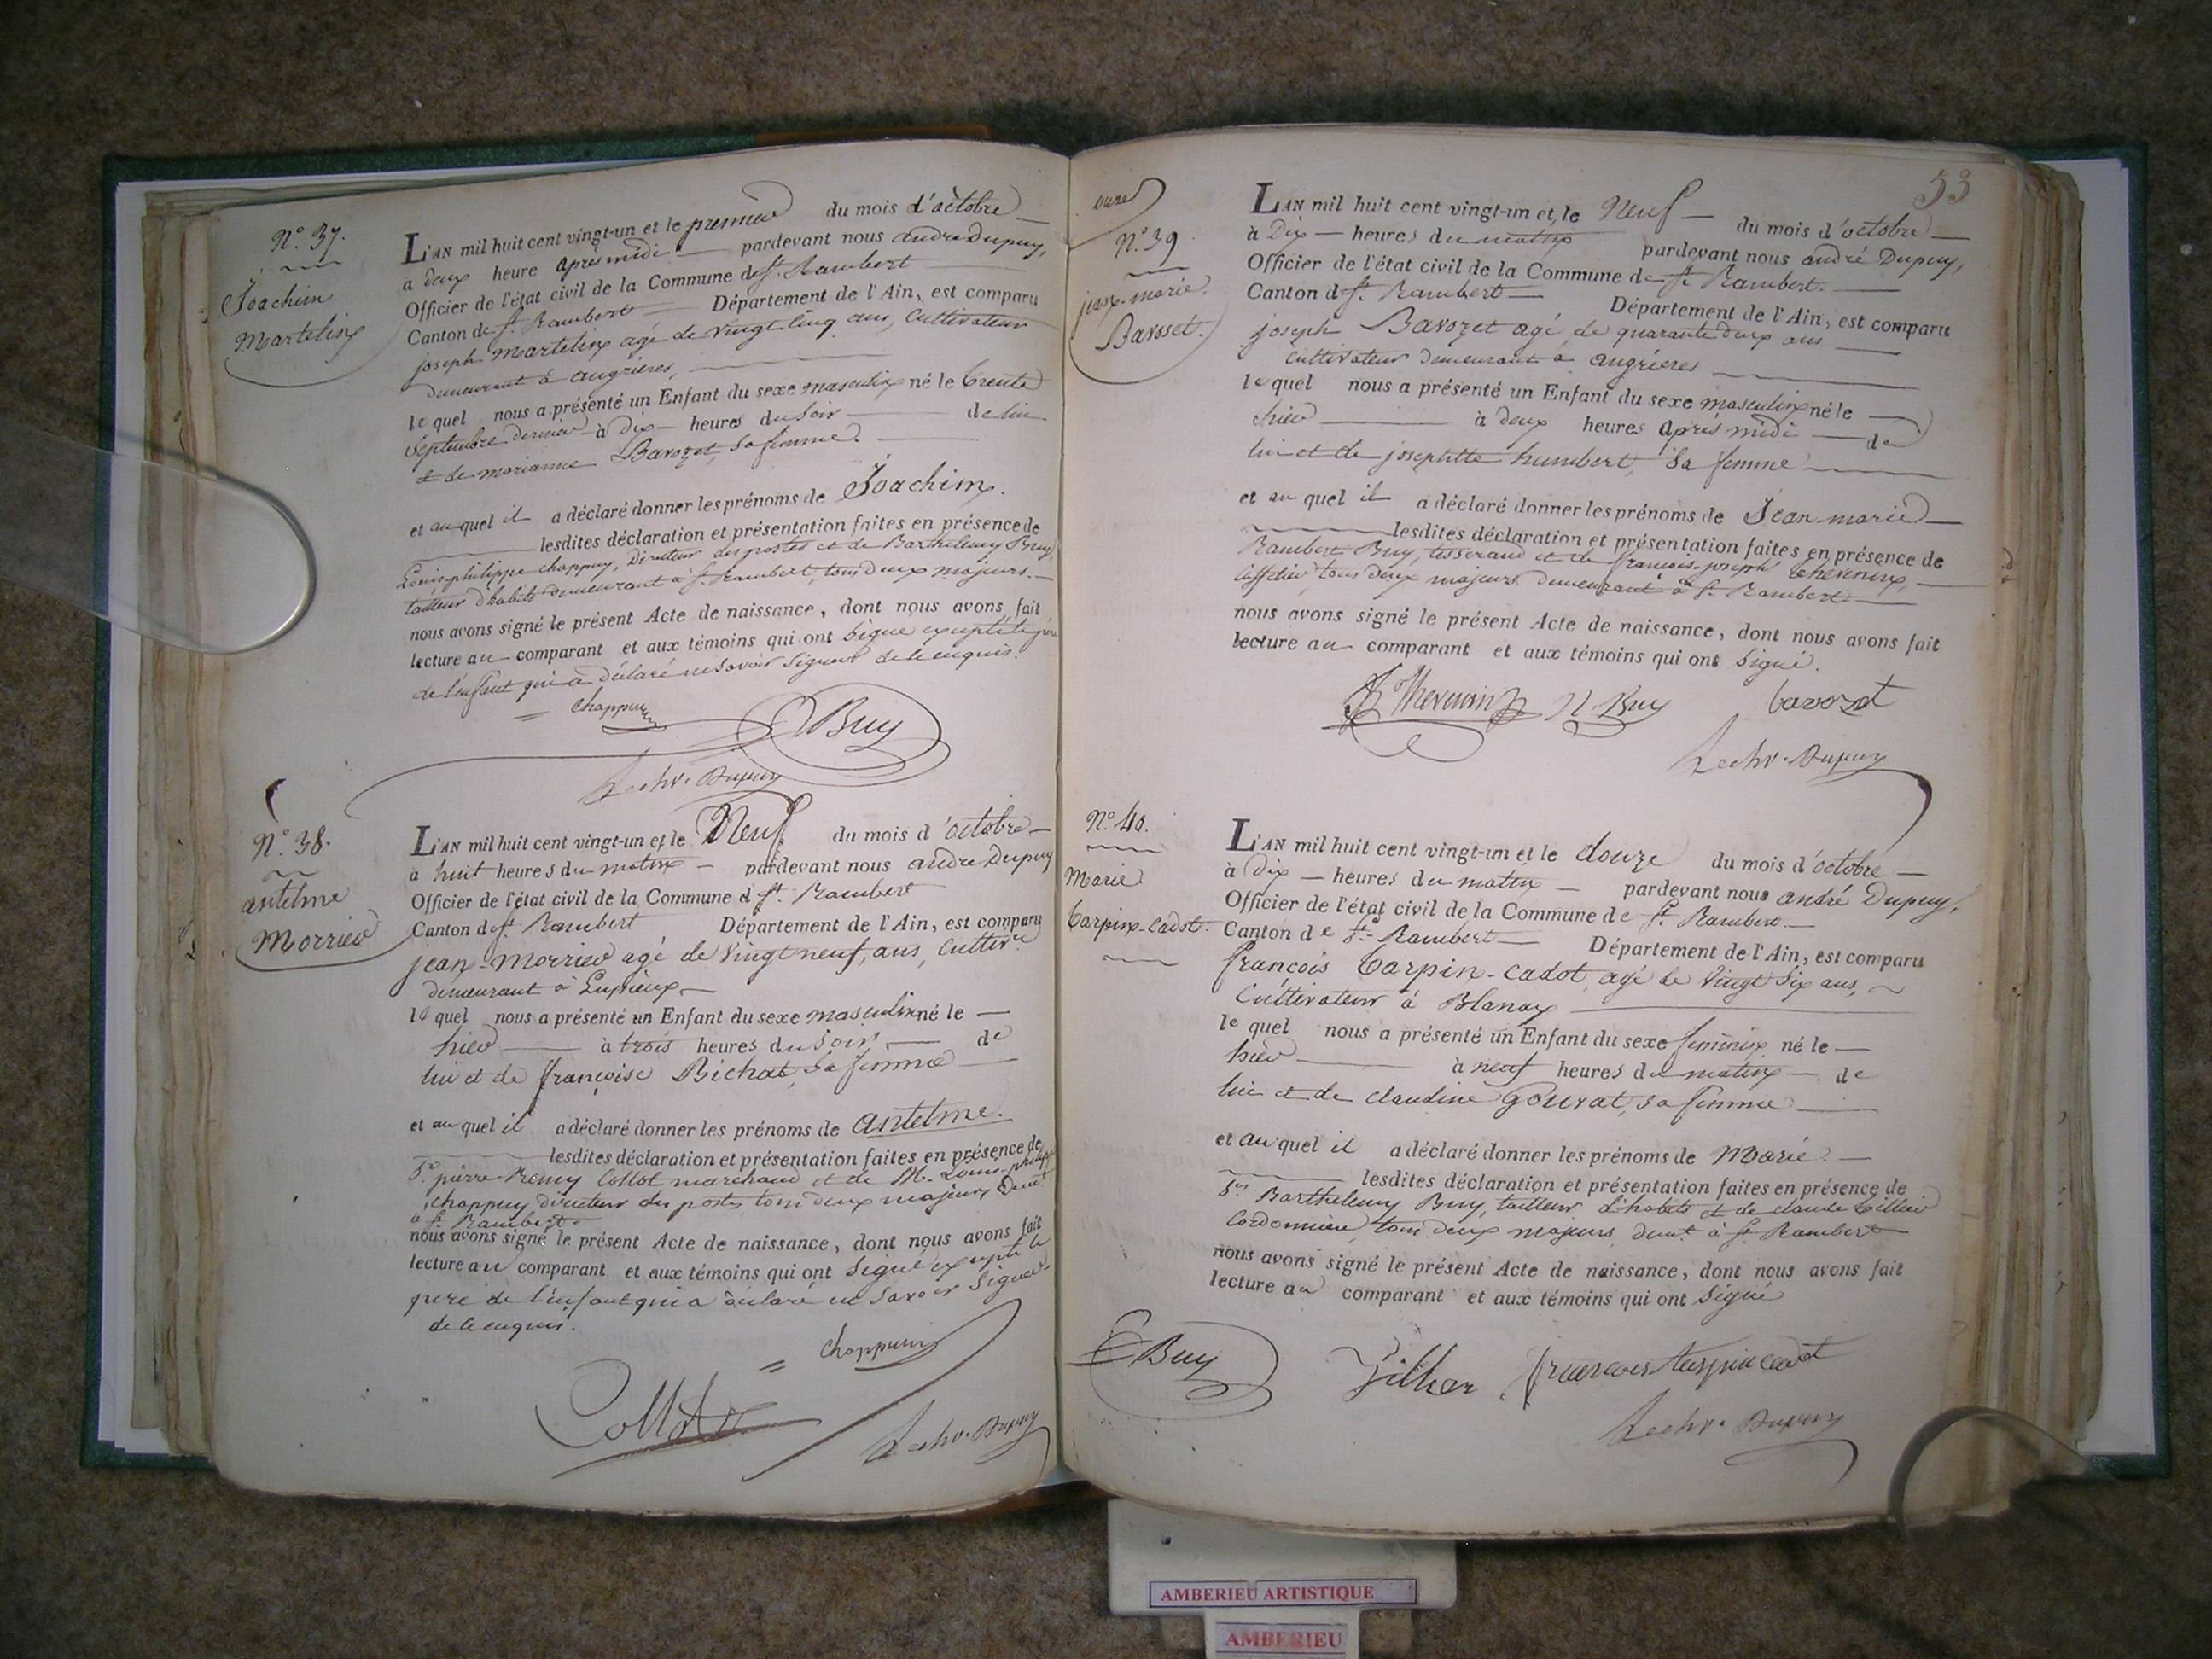 N.° 37.
Joachim
Martelin
L'AN mil huit cent vingt-un et le premier du mois d'octobre
à deux heure après midi pardevant nous andre Dupuy,
Officier de l'état civil de la Commune de St. Rambert
Canton de St. Rambert Département de l'Ain, est comparu
joseph Martelin agé de vingt cinq ans, Cultivateur
demeurant à angrieres,
lequel nous a présenté un Enfant du sexe masculin né le trente
Septembre dernier à dix heures du soir de lui
et de marianne Bavozet, sa femme.
et auquel il a déclaré donner les prénoms de Joachim.
lesdites déclaration et présentation faites en présence de
Louis-philippe chappuy, Directeur des postes et de Barthelemy Buy,
tailleur d'habits demeurant à St. Rambert, tous deux majeurs.
nous avons signé le présent Acte de naissance, dont nous avons fait
lecture au comparant et aux témoins qui ont signé excepté le père
de l'enfant qui a déclaré ne savoir signer de ce enquis.
Chappuy
Buy
Dupuy
N.° 38.
antelme
Morrier
L'AN mil huit cent vingt-un et le Neuf du mois d'octobre
à huit heures du matin pardevant nous andre Dupuy
Officier de l'état civil de la Commune d St. Rambert
Canton de St. Rambert Département de l'Ain, est comparu
jean-Morrier agé de vingt neuf, ans, cultivr
demeurant à Lupieux
lequel nous a présenté un Enfant du sexe masculin né le
hier à trois heures du soir de
lui et de françoise Bichat, sa femme
et auquel il a déclaré donner les prénoms de antelme.
lesdites déclaration et présentation faites en présence de
Sr. pierre-Remy Collot marchand et de M. Louis-philippe
chappuy directeur des postes, tous deux majeurs demt
à St. Rambert
nous avons signé le présent Acte de naissance, dont nous avons fait
lecture au comparant et aux témoins qui ont signé excepté le
père de l'enfant qui a déclaré ne savoir signer
de ce enquis.
Chappuy
Collot
Dupuy
53
N.° 39
jean-marie
Bavoset.
LAN mil huit cent vingt-un et le Neuf du mois d'octobre
à Dix heures du matin pardevant nous andré Dupuy,
Officier de l'état civil de la Commune de St. Rambert.
Canton d St. Rambert Département de l'Ain, est comparu
joseph Bavozet agé de quarante deux ans
cultivateur demeurant à angrieres
lequel nous a présenté un Enfant du sexe masculin né le
hier à deux heures après midi de
lui et de josephtte humbert, sa femme
et au quel il a déclaré donner les prénoms de Jean-marie
lesdites déclaration et présentation faites en présence de
Rambert Buy, tisserand et de françois-joseph thevenin,
caffetier, tous deux majeurs demeurant à St. Rambert
nous avons signé le présent Acte de naissance, dont nous avons fait
lecture au comparant et aux témoins qui ont signé.
Thevenin R. Buy bavozet
Dupuy
N.° 40.
Marie
Carpin-Cadot.
L'AN mil huit cent vingt-un et le douze du mois d'octobre
à Dix heures du matin pardevant nous andré Dupuy,
Officier de l'état civil de la Commune de St. Rambert
Canton de St. Rambert Département de l'Ain, est comparu
françois Carpin-Cadot, agé de vingt six ans,
Cultivateur à Blanaz
lequel nous a présenté un Enfant du sexe feminin né le
hier à neuf heures du matin de
lui et de claudine Gouvat, sa femme
et au quel il a déclaré donner les prénoms de Marie
lesdites déclaration et présentation faites en présence de
Srs Barthelemy Buy, tailleur d'habits et de claude tillier
Cordonnier, tous deux majeurs demt à St Rambert
nous avons signé le présent Acte de naissance, dont nous avons fait
lecture au comparant et aux témoins qui ont signé
Buy
francois
Dupuy
AMBERIEU ARTISTIQUE
AMBERIEU